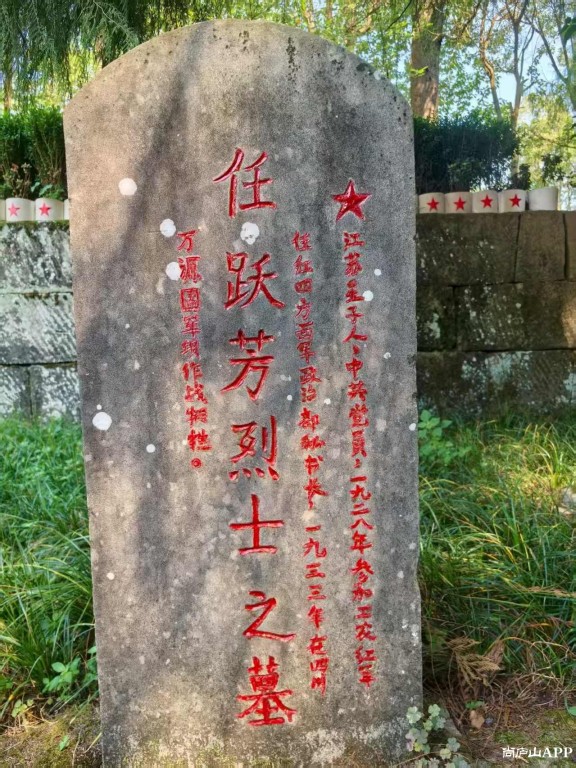 江苏王子人、中共党员，一九二八年参加工农红军
任红四方面军政治部秘书长，一九三三年在四川
任跃芳烈士之墓
万源國军坝作战牺牲。
尚庐山APP